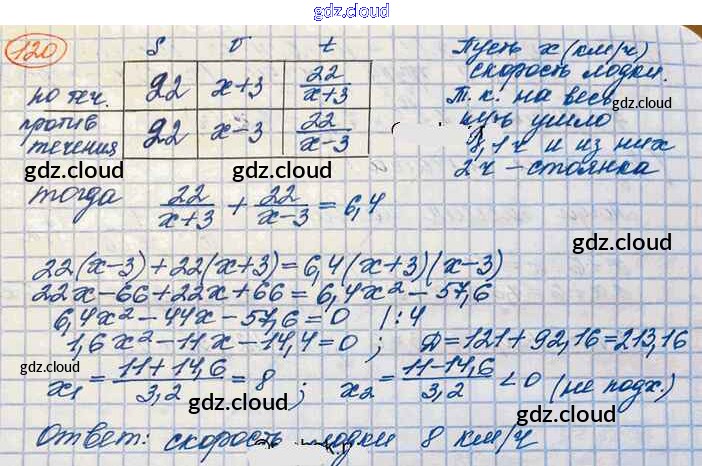 gdz.cloud
120
S v t
по теч. 22 x+3 22/(x+3)
против течения 22 x−3 22/(x−3)
Пусть x (км/ч)
скорость лодки.
Т.к. на весь
путь ушло
ч и из них
2ч – стоянка
gdz.cloud
gdz.cloud
gdz.cloud
gdz.cloud
тогда 22/(x+3) + 22/(x−3) = 6,4
gdz.cloud
gdz.cloud
22(x−3)+22(x+3)=6,4(x+3)(x−3)
22x−66+22x+66=6,4x²−57,6
6,4x²−44x−57,6=0 |:4
1,6x²−11x−14,4=0; Д=121+92,16=213,16
x₁=(11+14,6)/3,2=8; x₂=(11−14,6)/3,2<0 (не подх.)
gdz.cloud
gdz.cloud
gdz.cloud
Ответ: скорость лодки 8 км/ч